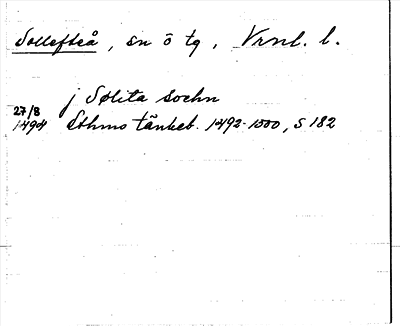 Sollefteå, sn ö tg, Vrnl. l.
j Sølita sochn
27/8
1494 Sthms tänkeb. 1492-1500, s 182